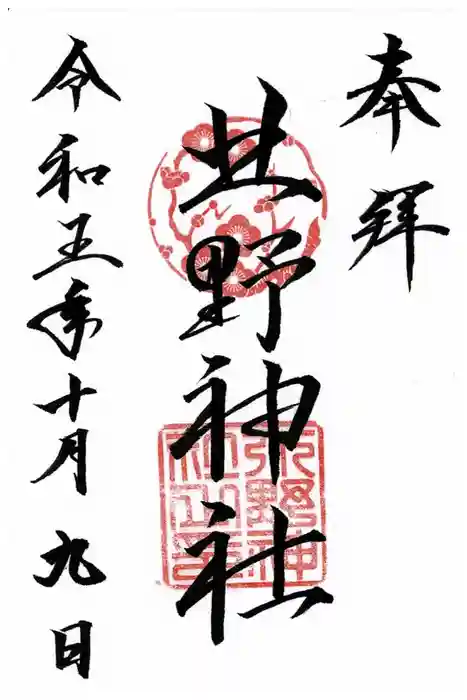 奉拝
北野神社
令和五年十月九日
北野神
社之印